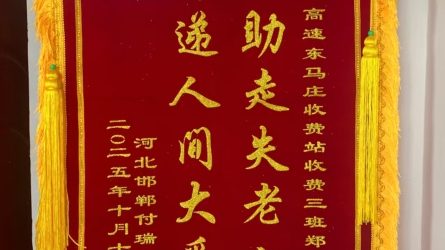 高速东马庄收费站收费三班郑
助走失老
递人间大
河北邯郸付瑞
二〇二五年十月